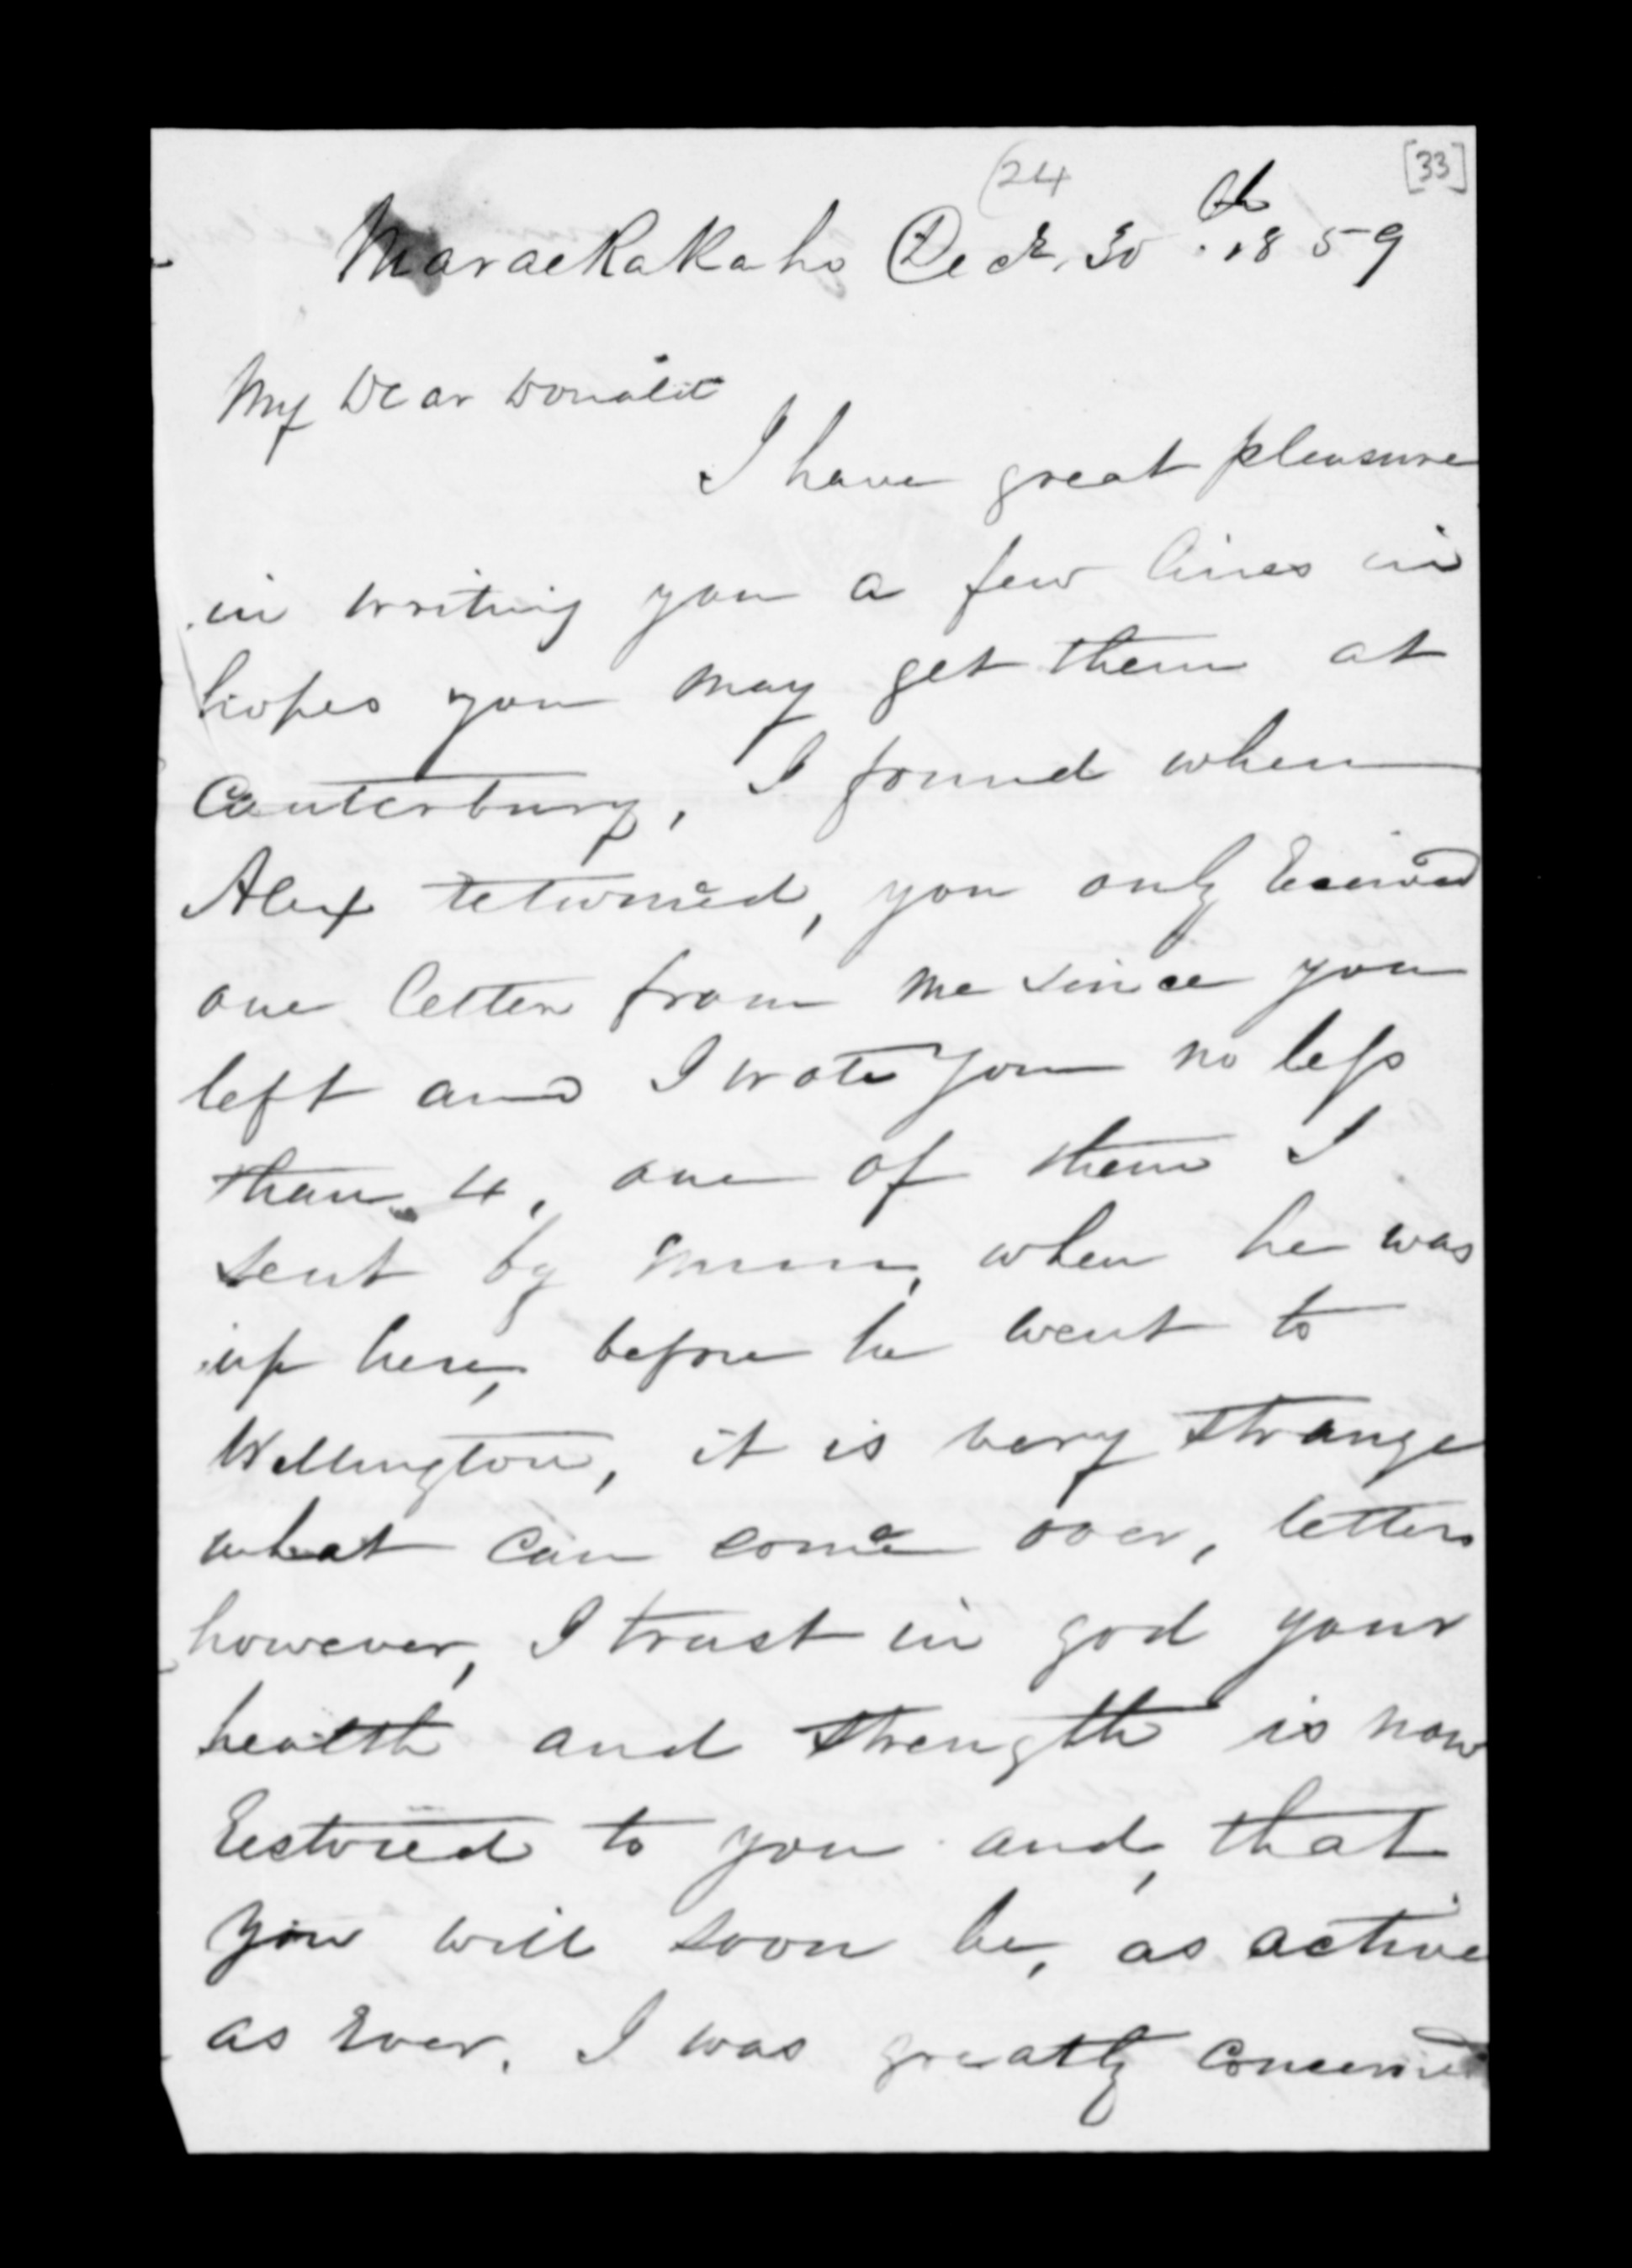 (24
[33]
Maraekakaho Decr. 30th. 1859
My Dear Donald
I have great pleasure
in writing you a few lines in
hopes you may get them at
Canterbury, I found when
Alex returned, you only Received
one letter from me since you
left and I wrote you no less
than 4, one of them I
sent by when he was
up here, before he went to
Wellington, it is very strange
what can come over, letters
however, I trust in god your
health and strength is now
Restored to you and, that
you will soon be, as active
as Ever. I was greatly concerned